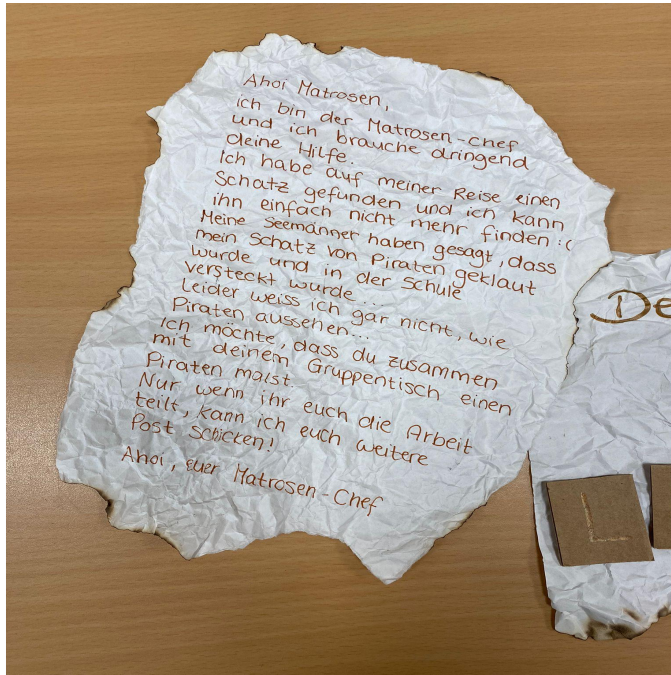 Ahoi Matrosen,
ich bin der Matrosen-Chef
und ich brauche dringend
deine Hilfe.
Ich habe auf meiner Reise einen
Schatz gefunden und ich kann
ihn einfach nicht mehr finden :(
Meine Seemänner haben gesagt, dass
mein Schatz von Piraten geklaut
wurde und in der Schule
versteckt wurde...
Leider weiss ich gar nicht, wie
Piraten aussehen...
Ich möchte, dass du zusammen
mit deinem Gruppentisch einen
Piraten malst.
Nur wenn ihr euch die Arbeit
teilt, kann ich euch weitere
Post schicken!
Ahoi, euer Matrosen-Chef
De
L